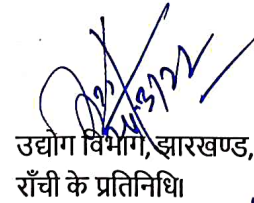 24/3/22
उद्योग विभाग, झारखण्ड,
राँची के प्रतिनिधि।